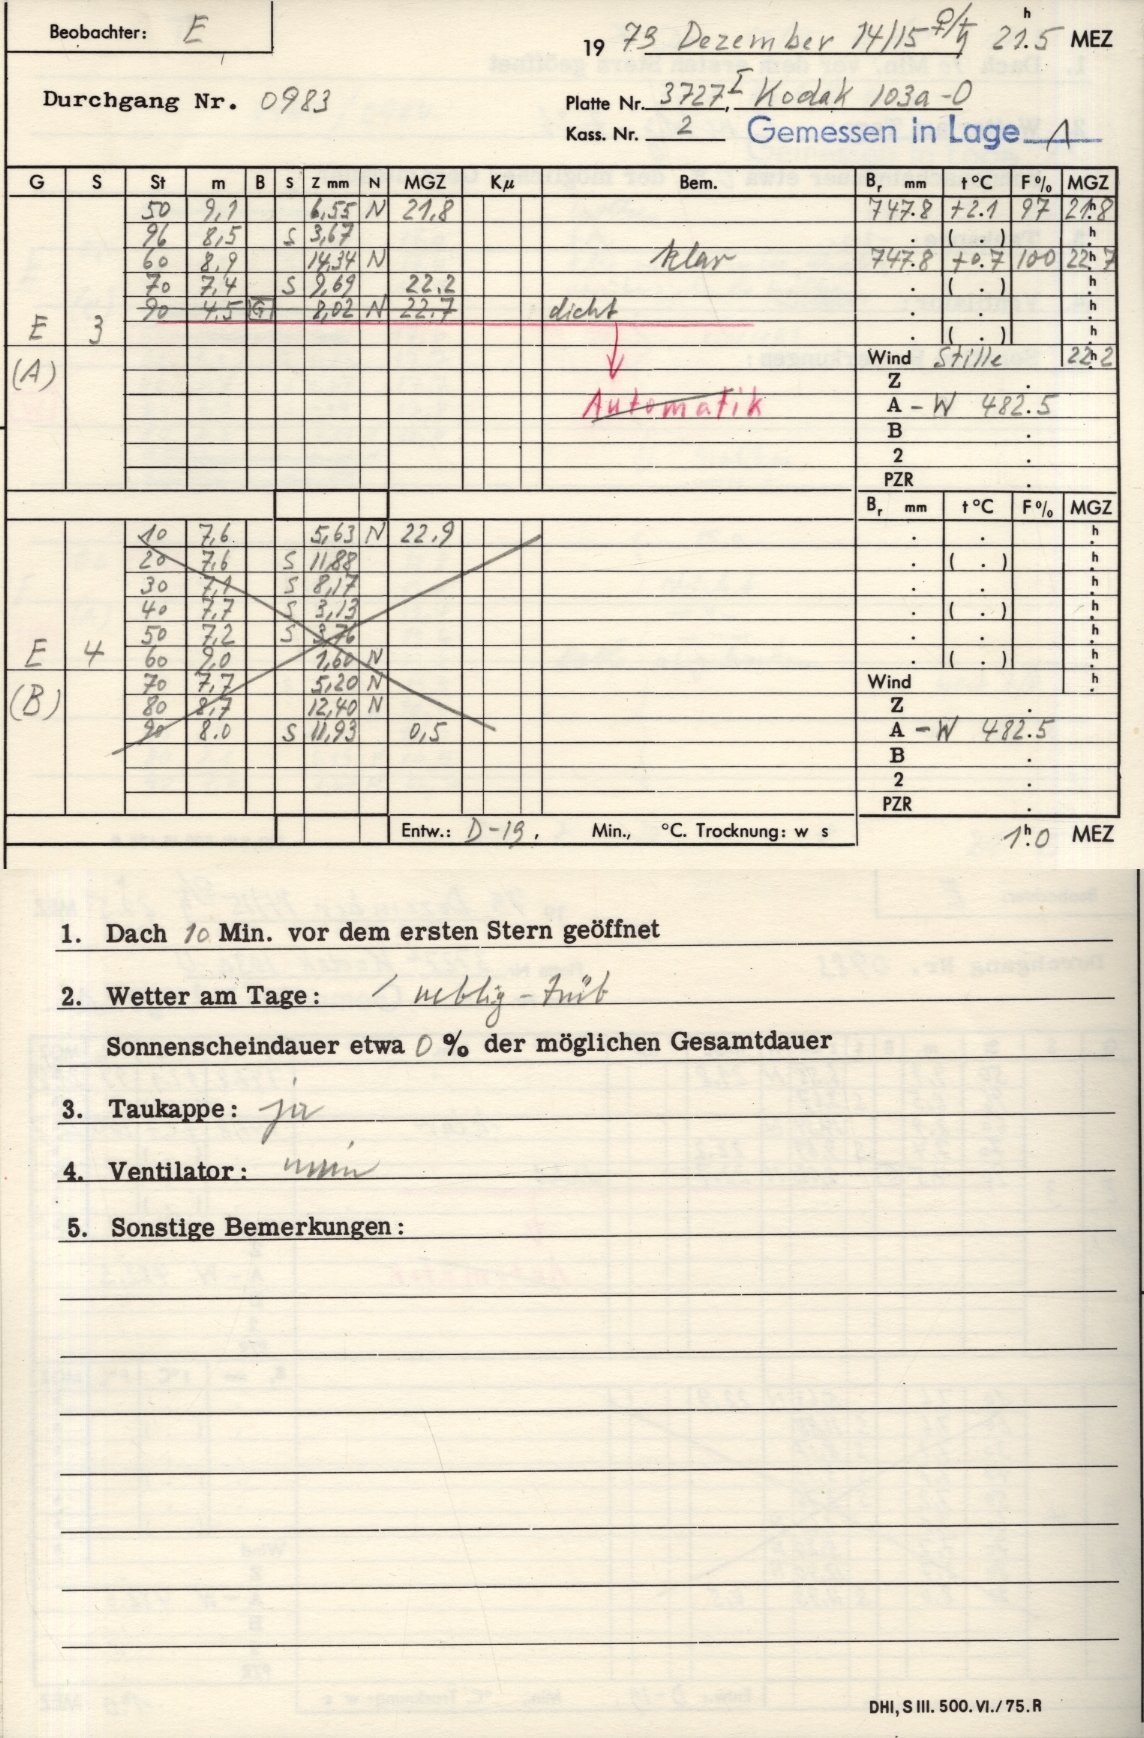 Beobachter: E
19 79 Dezember 14/15 ♀/♄ 21.5 h MEZ
Durchgang Nr. 0983
Platte Nr. 3727 I, Kodak 103a-O
Kass. Nr. 2 Gemessen in Lage A
G S St m B S Z mm N MGZ Kμ Bem. Br mm t°C F% MGZ
50 9,1 6,55 N 21,8 747.8 +2.1 97 21h8
96 8,5 S 3,67 . ( . ) h
60 8,9 14,34 N klar 747.8 +0.7 100 22h7
70 7,4 S 9,69 22.2 . ( . ) h
90 4,5 G 8,02 N 22,7 dicht . . h
E 3 . ( . ) h
(A) Wind Stille 22h2
Z .
Automatik A - W 482.5
B .
2 .
PZR .
Br mm t°C F% MGZ
10 7,6 5,63 N 22,9 . . h
20 7,6 S 11,88 . ( . ) h
30 7,1 S 8,17 . . h
40 7,7 S 3,13 . ( . ) h
50 7,2 S 3,76 . . h
E 4 60 9,0 1,60 N . ( . ) h
(B) 70 7,7 5,20 N Wind h
80 8,7 12,40 N Z .
90 8.0 S 11,93 0,5 A - W 482.5
B .
2 .
PZR .
Entw.: D-19, Min., °C. Trocknung: w s 1h.0 MEZ
1. Dach 10 Min. vor dem ersten Stern geöffnet
2. Wetter am Tage: / neblig-trüb
Sonnenscheindauer etwa 0 % der möglichen Gesamtdauer
3. Taukappe: ja
4. Ventilator: nein
5. Sonstige Bemerkungen:
DHI, S III. 500. VI./75. R